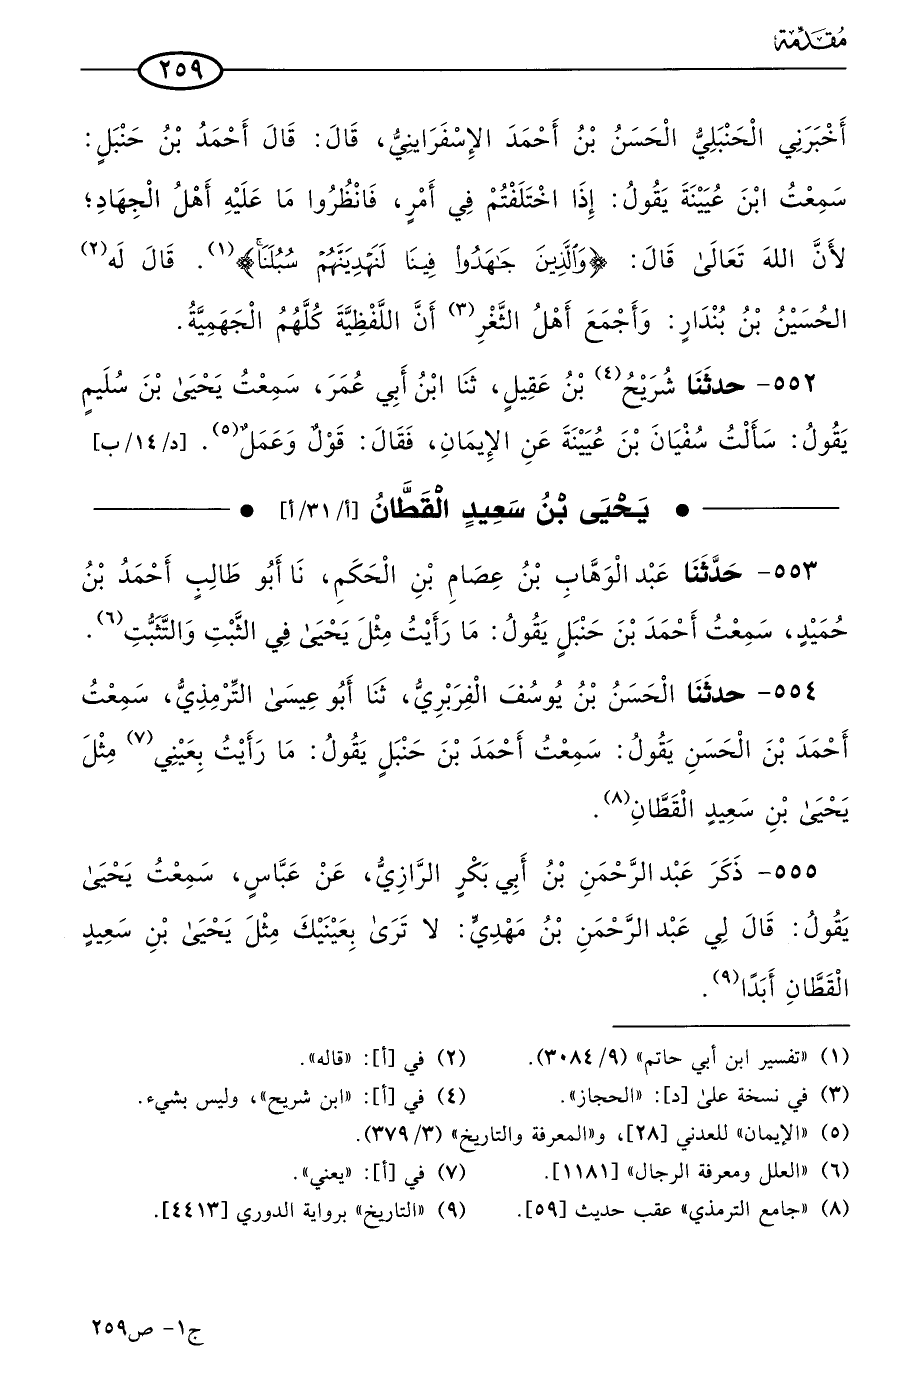 مُقَدِّمَة
٢٥٩
أَخْبَرَنِي الْحَنْبَلِيُّ الْحَسَنُ بْنُ أَحْمَدَ الإِسْفَرَايِنِيُّ، قَالَ: قَالَ أَحْمَدُ بْنُ حَنْبَلٍ:
سَمِعْتُ ابْنَ عُيَيْنَةَ يَقُولُ: إِذَا اخْتَلَفْتُمْ فِي أَمْرٍ، فَانْظُرُوا مَا عَلَيْهِ أَهْلُ الْجِهَادِ؛
لأَنَّ اللهَ تَعَالَىٰ قَالَ: ﴿وَٱلَّذِينَ جَٰهَدُوا۟ فِينَا لَنَهْدِيَنَّهُمْ سُبُلَنَاۚ﴾(١). قَالَ لَه(٢)
الحُسَيْنُ بْنُ بُنْدَارٍ: وَأَجْمَعَ أَهْلُ الثَّغْرِ(٣) أَنَّ اللَّفْظِيَّةَ كُلَّهُمُ الْجَهَمِيَّةُ.
٥٥٢- حدثَنَا شُرَيْحُ(٤) بْنُ عَقِيلٍ، ثَنَا ابْنُ أَبِي عُمَرَ، سَمِعْتُ يَحْيَىٰ بْنَ سُلَيمٍ
يَقُولُ: سَأَلْتُ سُفْيَانَ بْنَ عُيَيْنَةَ عَنِ الإِيمَانِ، فَقَالَ: قَوْلٌ وَعَمَلٌ(٥). [د/١٤/ب]
• يَحْيَى بْنُ سَعِيدٍ الْقَطَّانُ [أ/٣١/أ] •
٥٥٣- حَدَّثَنَا عَبْد الْوَهَّابِ بْنُ عِصَامِ بْنِ الْحَكَمِ، نَا أَبُو طَالِبٍ أَحْمَدُ بْنُ
حُمَيْدٍ، سَمِعْتُ أَحْمَدَ بْنَ حَنْبَلٍ يَقُولُ: مَا رَأَيْتُ مِثْلَ يَحْيَىٰ فِي الثَّبْتِ وَالتَّثَبُّتِ(٦).
٥٥٤- حدثَنَا الْحَسَنُ بْنُ يُوسُفَ الْفِرَبْرِيُّ، ثَنَا أَبُو عِيسَىٰ التِّرْمِذِيُّ، سَمِعْتُ
أَحْمَدَ بْنَ الْحَسَنِ يَقُولُ: سَمِعْتُ أَحْمَدَ بْنَ حَنْبَلٍ يَقُولُ: مَا رَأَيْتُ بِعَيْنِي(٧) مِثْلَ
يَحْيَىٰ بْنِ سَعِيدٍ الْقَطَّانِ(٨).
٥٥٥- ذَكَرَ عَبْد الرَّحْمَنِ بْنُ أَبِي بَكْرٍ الرَّازِيُّ، عَنْ عَبَّاسٍ، سَمِعْتُ يَحْيَىٰ
يَقُولُ: قَالَ لِي عَبْد الرَّحْمَنِ بْنُ مَهْدِيٍّ: لا تَرَىٰ بِعَيْنَيْكَ مِثْلَ يَحْيَىٰ بْنِ سَعِيدٍ
الْقَطَّانِ أَبَدًا(٩).
(١) «تفسير ابن أبي حاتم» (٩/ ٣٠٨٤). (٢) في [أ]: «قاله».
(٣) في نسخة علىٰ [د]: «الحجاز». (٤) في [أ]: «ابن شريح»، وليس بشيء.
(٥) «الإيمان» للعدني [٢٨]، و«المعرفة والتاريخ» (٣/ ٣٧٩).
(٦) «العلل ومعرفة الرجال» [١١٨١]. (٧) في [أ]: «يعني».
(٨) «جامع الترمذي» عقب حديث [٥٩]. (٩) «التاريخ» برواية الدوري [٤٤١٣].
ج١- ص٢٥٩